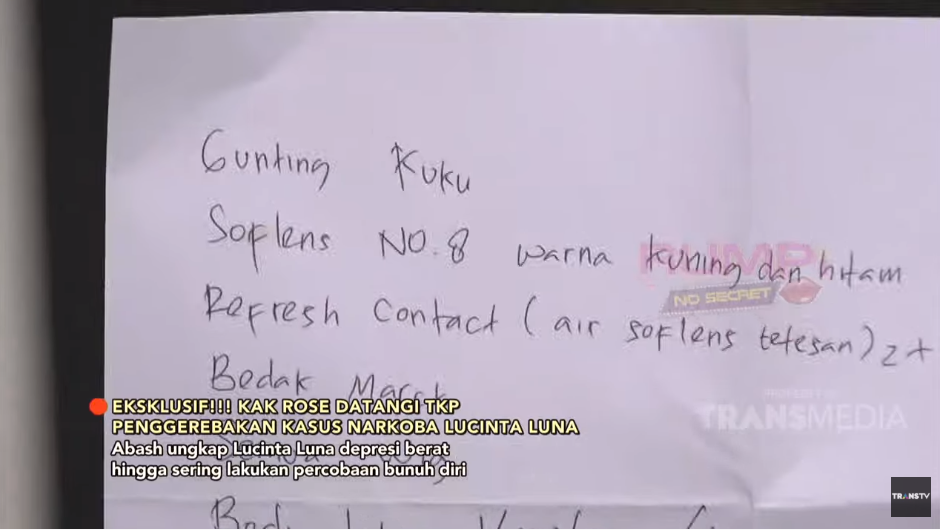 Gunting Kuku
Soflens NO.8 warna kuning dan hitam
Refresh Contact (air soflens tetesan) 2x
Bedak
RUMPI
NO SECRET
TRANSMEDIA
EKSKLUSIF!!! KAK ROSE DATANGI TKP
PENGGEREBEKAN KASUS NARKOBA LUCINTA LUNA
Abash ungkap Lucinta Luna depresi berat
hingga sering lakukan percobaan bunuh diri
TRANSTV